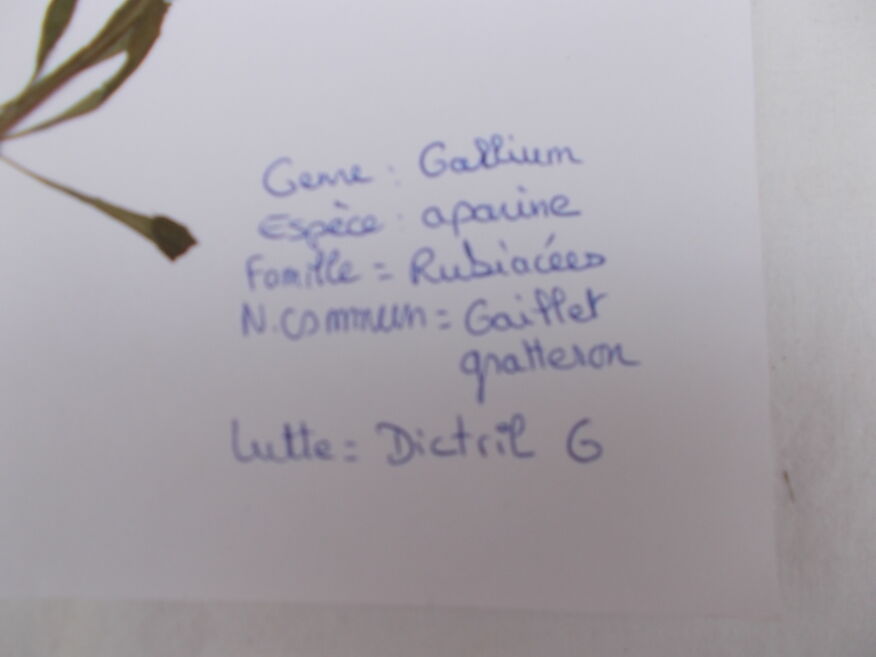 Genre : Gallium
Espèce : aparine
Famille = Rubiacées
N.commun = Gaillet
gratteron
Lutte = Dictril G